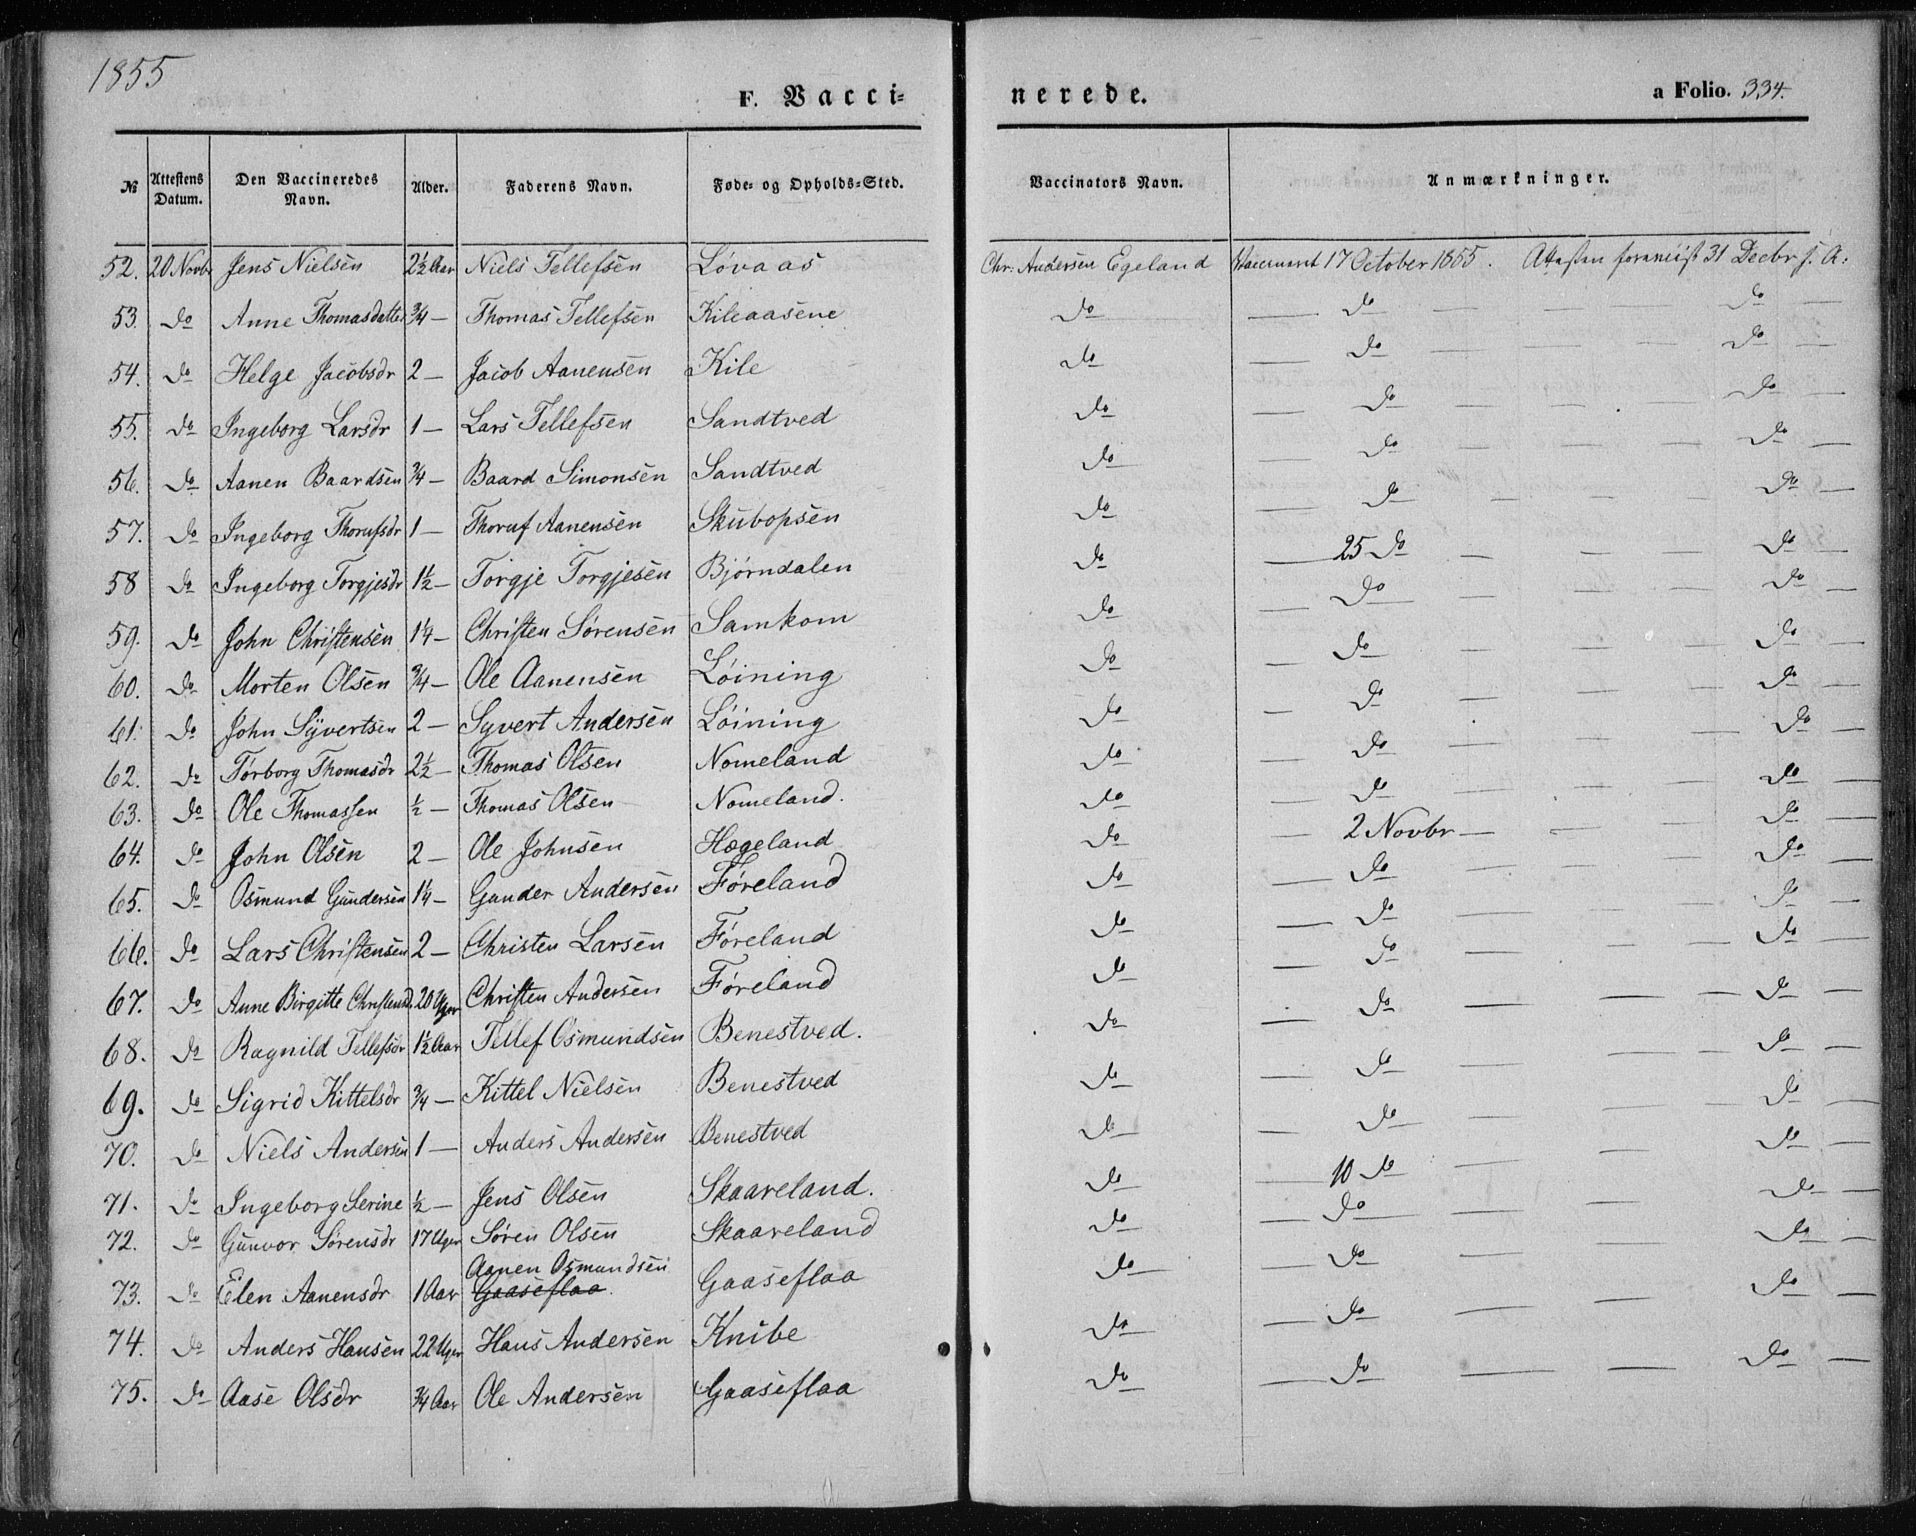 1855
F. Vacci-
nerede.
a Folio. 334.
№ Attestens Datum. Den Vaccineredes Navn. Alder. Faderens Navn. Føde- og Opholds-Sted. Vaccinators Navn. Anmærkninger.
52. 20 Novbr Jens Nielsen 2½ Aar Niels Tellefsen Løvaas Chr. Andersen Egeland Vaccineret 17 October 1855. Attesten forevist 31 Decbr s. A:
53. do Anne Thomasdatter ¾ — Thomas Tellefsen Kileaasene do — do — — — do —
54. do Helge Jacobsdr 2 — Jacob Aanensen Kile do — do — — — do —
55. do Ingeborg Larsdr 1 — Lars Tellefsen Sandtved do — do — — — do —
56. do Aanen Baardsen ¾ — Baard Simonsen Sandtved do — do — — — do —
57. do Ingeborg Thorufsdr 1 — Thoruf Aanensen Skubopsen do — do — — — do —
58 do Ingeborg Torgjesdr 1½ — Torgje Torgjesen Bjørndalen do — 25 do — — — do —
59. do John Christensen 1¼ — Christen Sørensen Samkom do — do — — — do —
60. do Morten Olsen ¾ — Ole Aanensen Løining do — do — — — do —
61. do John Syvertsen 2 — Syvert Andersen Løining do — do — — — do —
62. do Torborg Thomasdr 2½ — Thomas Olsen Nomeland do — do — — — do —
63. do Ole Thomassen ½ — Thomas Olsen Nomeland. do — do — — — do —
64. do John Olsen 2 — Ole Johnsen Hægeland do — 2 Novbr — — — do —
65. do Osmund Gundersen 1¼ — Gunder Andersen Føreland do — do — — — do —
66. do Lars Christensen 2 — Christen Larsen Føreland do — do — — — do —
67. do Anne Birgitte Christensd. 20 Uger Christen Andersen Føreland do — do — — — do —
68. do Ragnild Tellefsdr 1½ Aar Tellef Osmundsen Benestved. do — do — — — do —
69. do Sigrid Kittelsdr ¾ — Kittel Nielsen Benestved do — do — — — do —
70. do Niels Andersen 1 — Anders Andersen Benestved do — do — — — do —
71. do Ingeborg Serine ½ — Jens Olsen Skaareland. do — 10 do — — — do —
72. do Gunvor Sørensdr 17 Uger Søren Olsen Skaareland do — do — — — do —
73. do Elen Aanensdr 1 Aar Aanen Osmundsen Gaaseflaa. Gaaseflaa do — do — — — do —
74. do Anders Hansen 22 Uger Hans Andersen Knibe do — do — — — do —
75. do Aase Olsdr ¾ Aar Ole Andersen Gaaseflaa do — do — — — do —